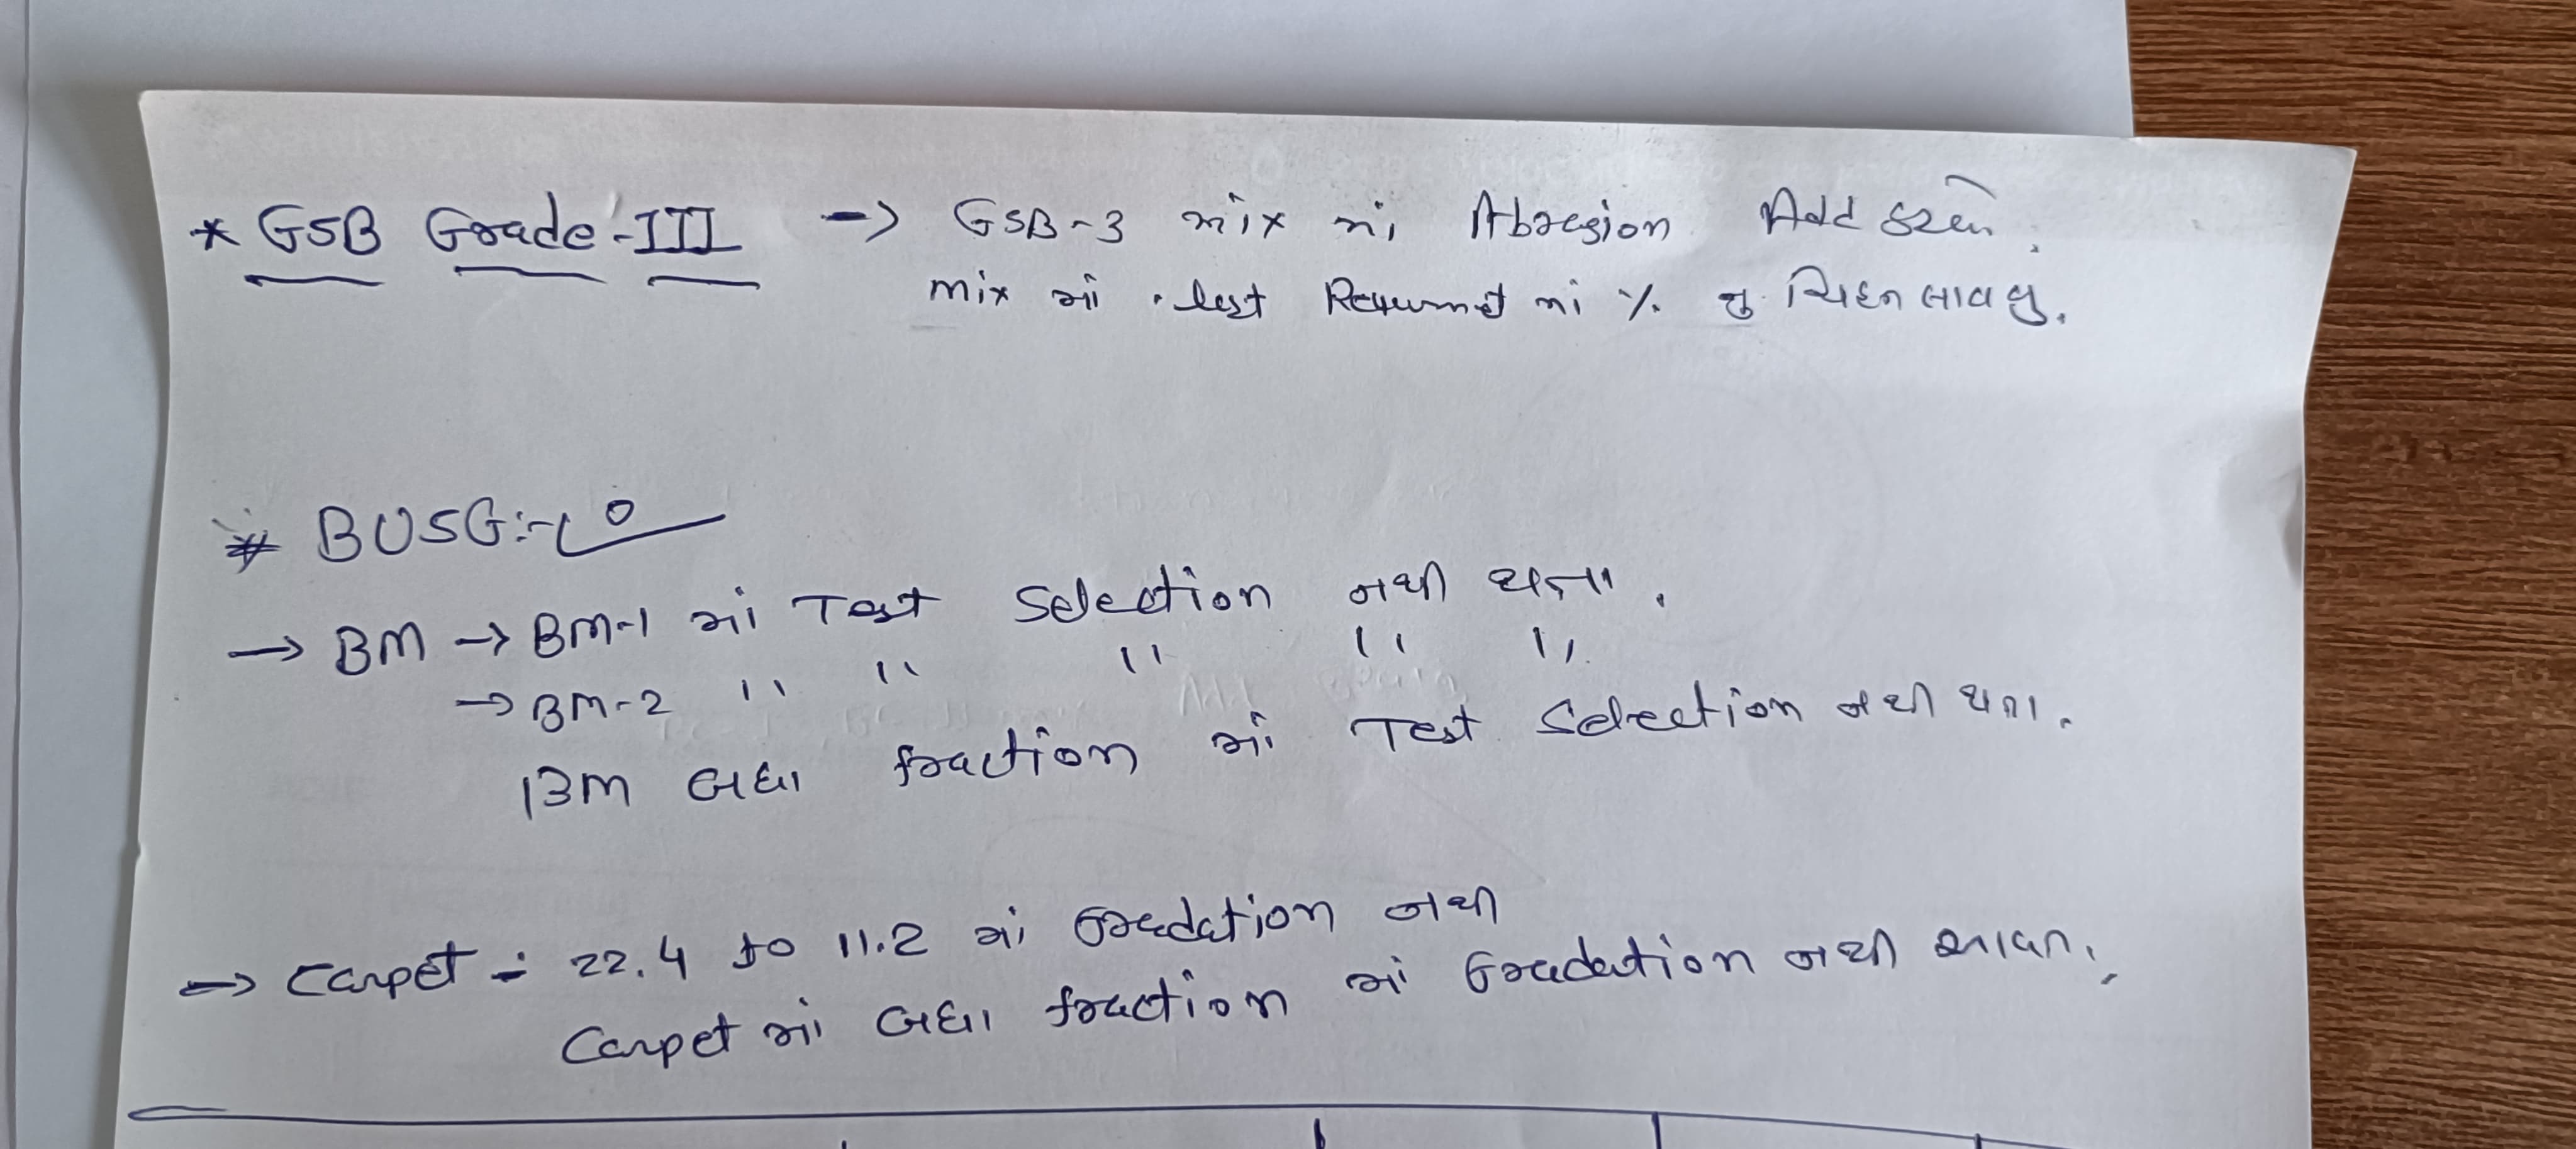 * GSB Grade-III → GSB-3 mix માં Abrasion Add કરવો.
mix માં test ના % નુ ચિહ્ન લાવવુ.
* BUSG:-
→ BM → BM-1 માં Test Selection નથી થતા.
→ BM-2 '' '' '' '' ''
BM બધા fraction માં Test Selection નથી થતા.
→ Carpet :- 22.4 to 11.2 માં Gradation નથી
Carpet માં બધા fraction માં Gradation નથી આવતા.